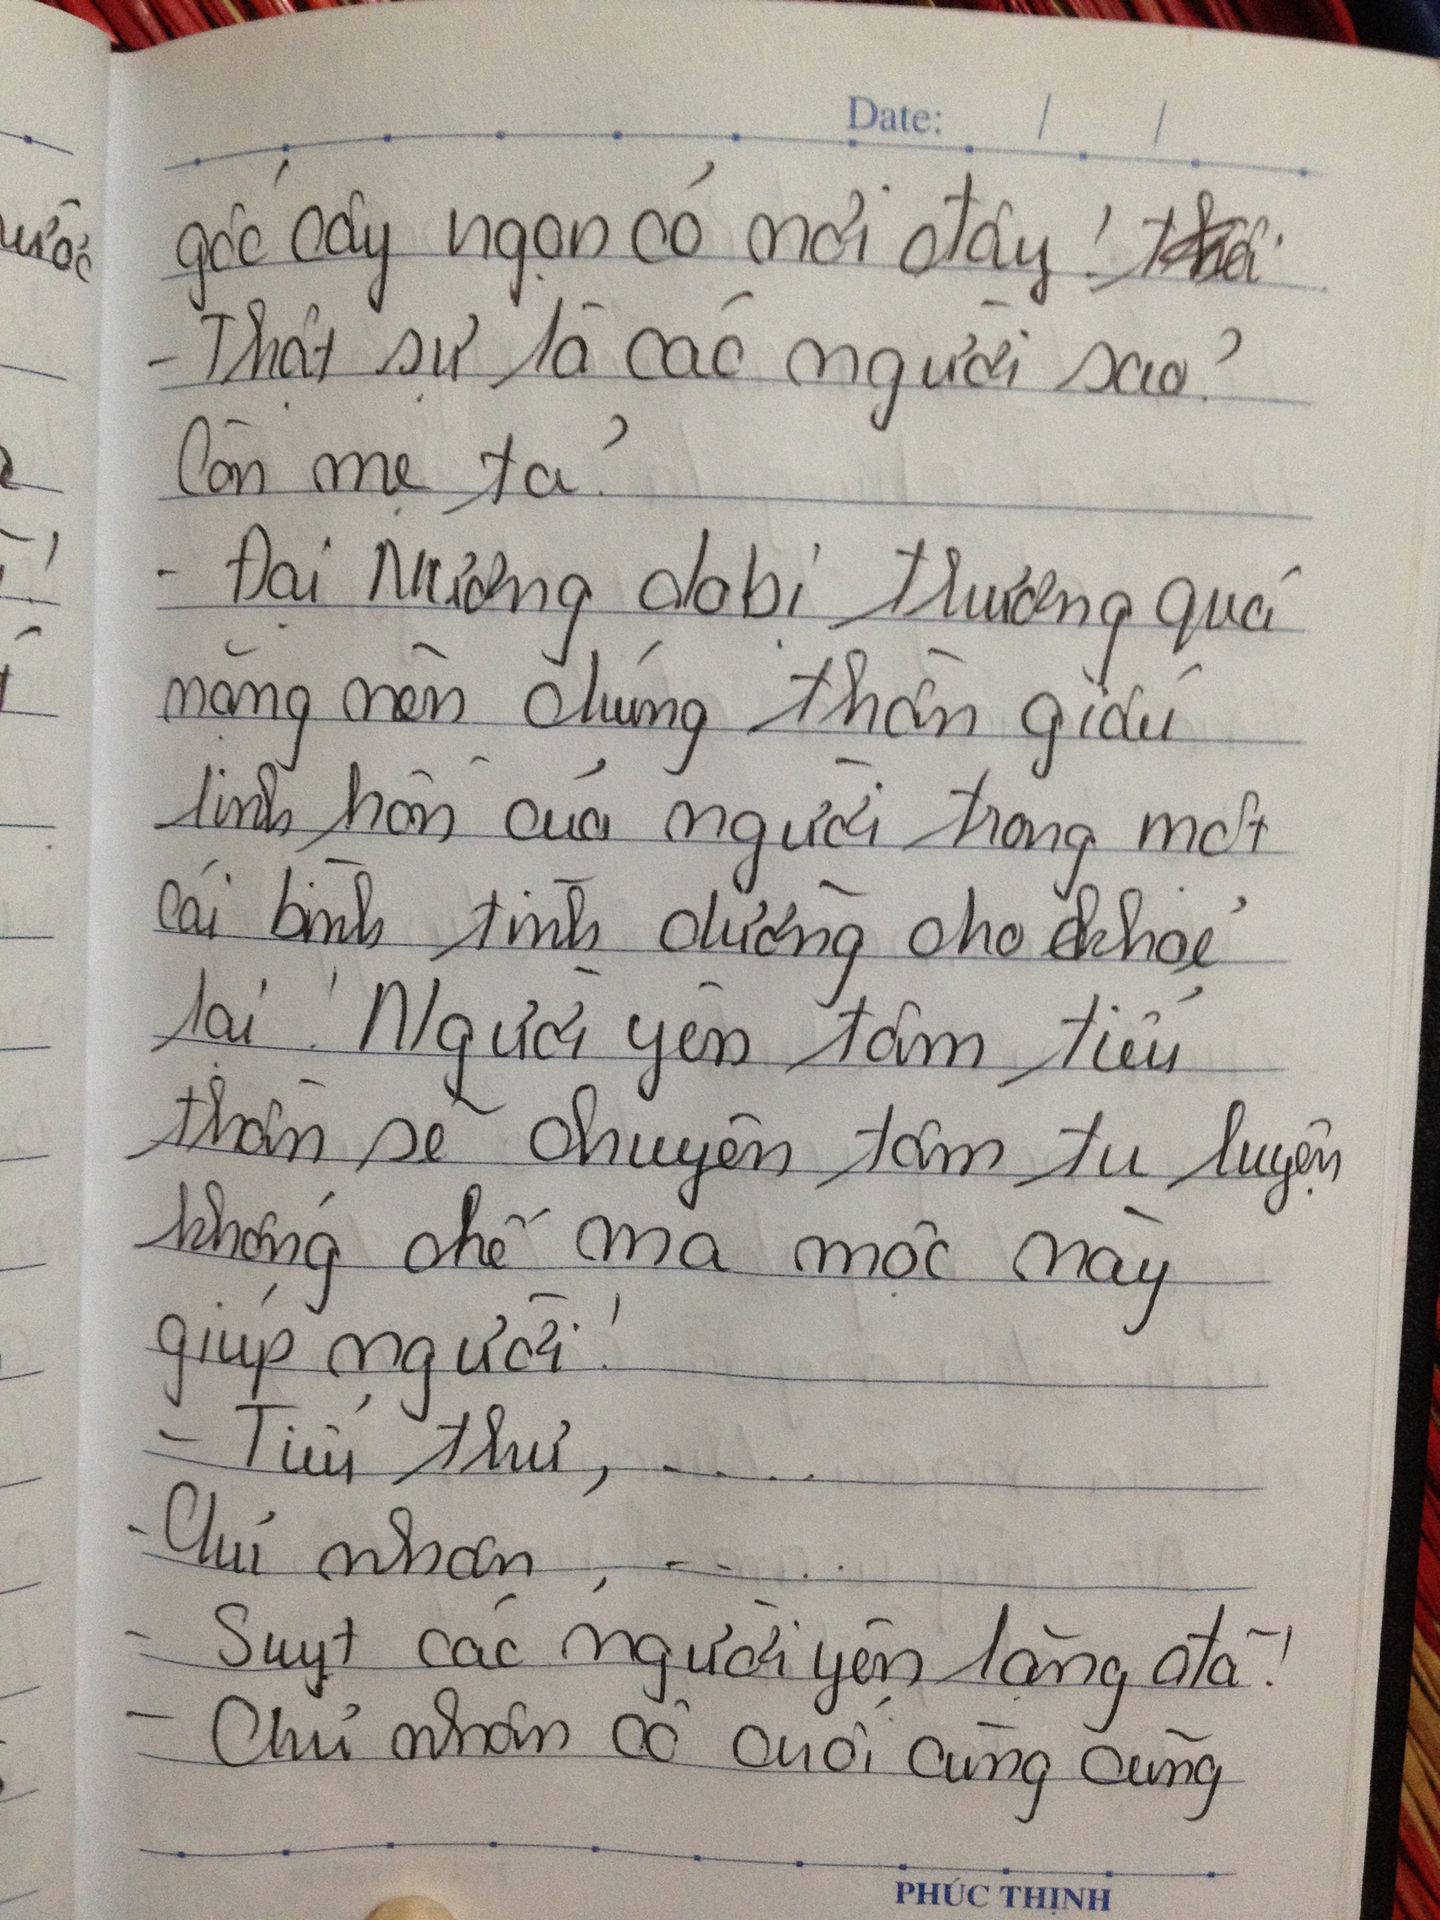 Date: / /
gốc cây ngọn cỏ nơi đây!
- Thật sự là các người sao?
Còn mẹ ta?
- Đại Nương do bị thương quá
nặng nên chúng thần giấu
linh hồn của người trong một
cái bình tĩnh dưỡng cho khoẻ
lại! Người yên tâm tiểu
thần sẽ chuyên tâm tu luyện
khống chế ma mộc này
giúp người!
- Tiểu thư, .....
- Chủ nhân, .....
- Suỵt các người yên lặng đã!
- Chủ nhân cô cuối cùng cũng
PHÚC THỊNH